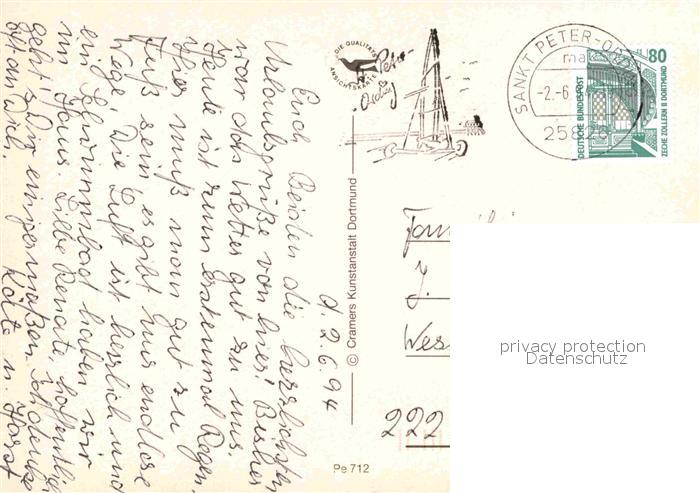 d. 2.6.94
Euch Beiden die herzlichsten
Urlaubsgrüße von hier! Bisher
war das Wetter gut zu uns.
Heute ist zum erstenmal Regen.
Hier muß man gut zu
Fuß sein, es gibt nur endlose
Wege. Die Luft ist herrlich und
ein Schwimmbad haben wir
im Haus. Liebe Renate, hoffentlich
geht's Dir einigermaßen. Ich denke
oft an Dich.
Käte u. Horst
© Cramers Kunstanstalt Dortmund
Pe 712
DIE QUALITÄTS
ANSICHTSKARTE
SANKT PETER-O
-2.-6.
2582
80
DEUTSCHE BUNDESPOST
ZECHE ZOLLERN II DORTMUND
J.
Wes
222
privacy protection
Datenschutz